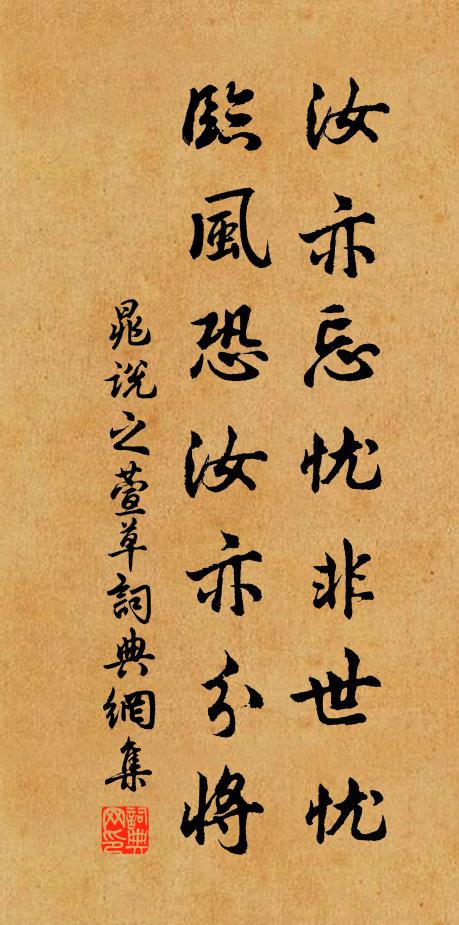 汝亦忘忧非世忧
臨風恐汝亦分將
晁说之萱草詞典網集
詞典网印